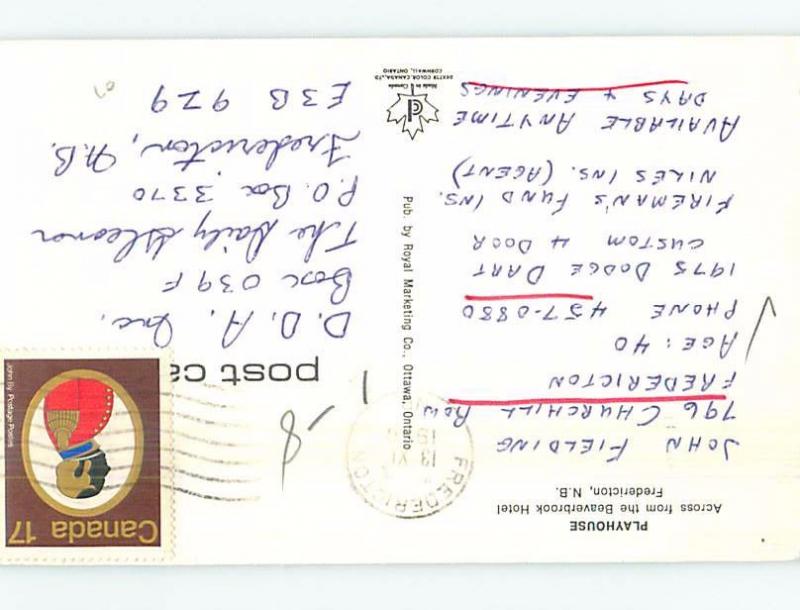 PLAYHOUSE
Across from the Beaverbrook Hotel
Fredericton, N.B.
JOHN FIELDING
796 CHURCHILL ROW
FREDERICTON
AGE: 40
PHONE 457-0880
1975 DODGE DART
CUSTOM 4 DOOR
FIREMAN'S FUND INS.
NILES INS. (AGENT)
AVAILABLE ANYTIME
DAYS & EVENINGS
Pub. by Royal Marketing Co., Ottawa, Ontario
Made in Canada
DEXTER COLOR CANADA, LTD.
CORNWALL, ONTARIO
Canada 17
John By Postage Postes
FREDERICTON
13 VI
post ca
D.D.A. Inc.
Box 039F
The Daily Gleaner
P.O. Box 3370
Fredericton, N.B.
E3B 9Z9